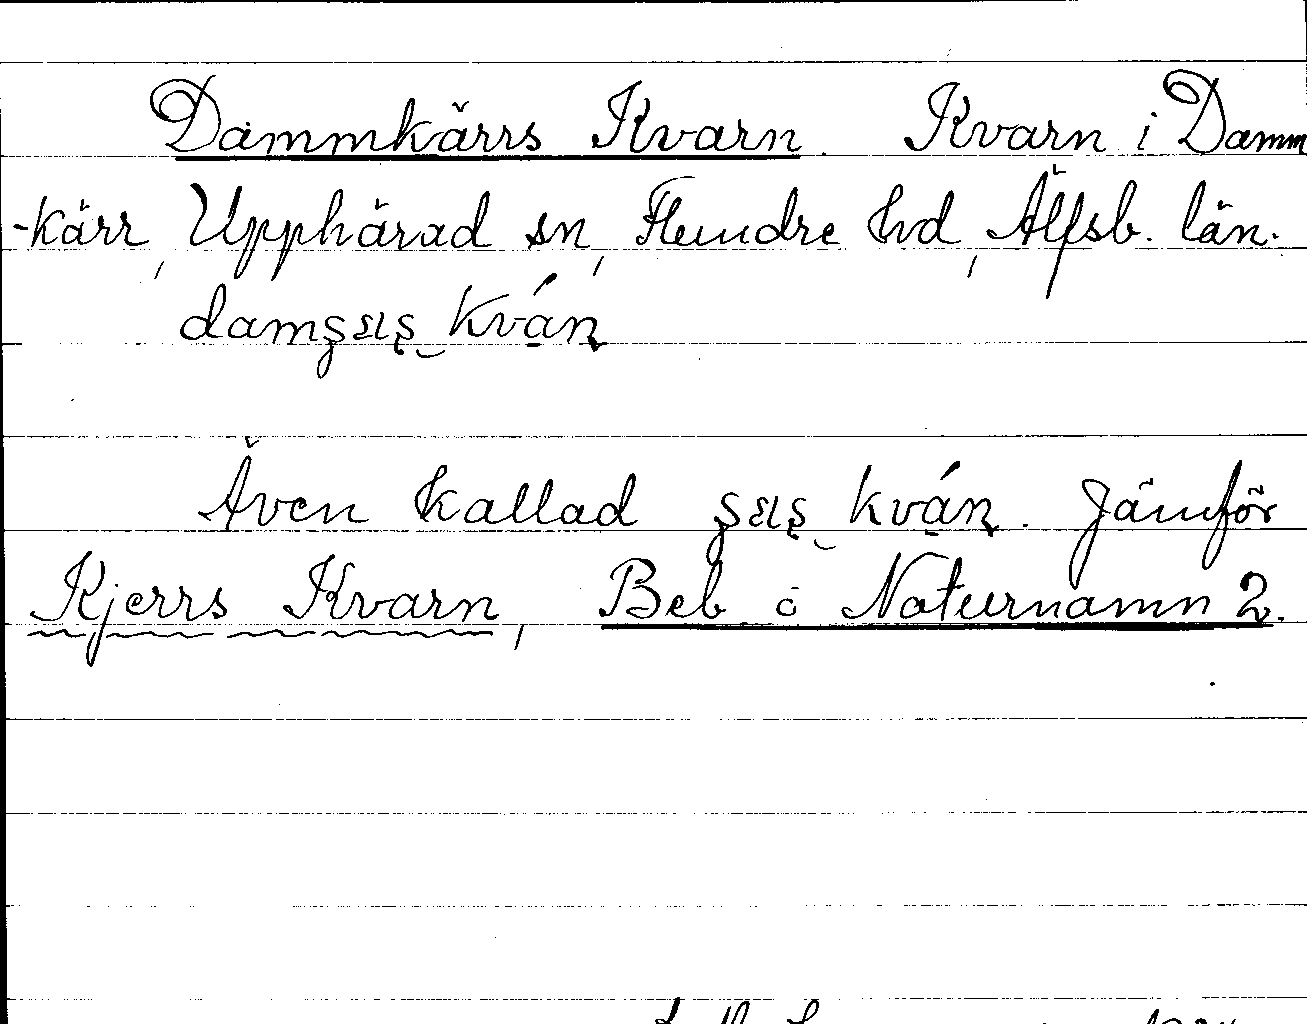 Dammkärrs Kvarn. Kvarn i Damm
-kärr, Upphärad sn, Flundre hd, Älfsb. län.
kván
Även kallad kván. Jämför
Kjerrs Kvarn, Beb. o Naturnamn 2.